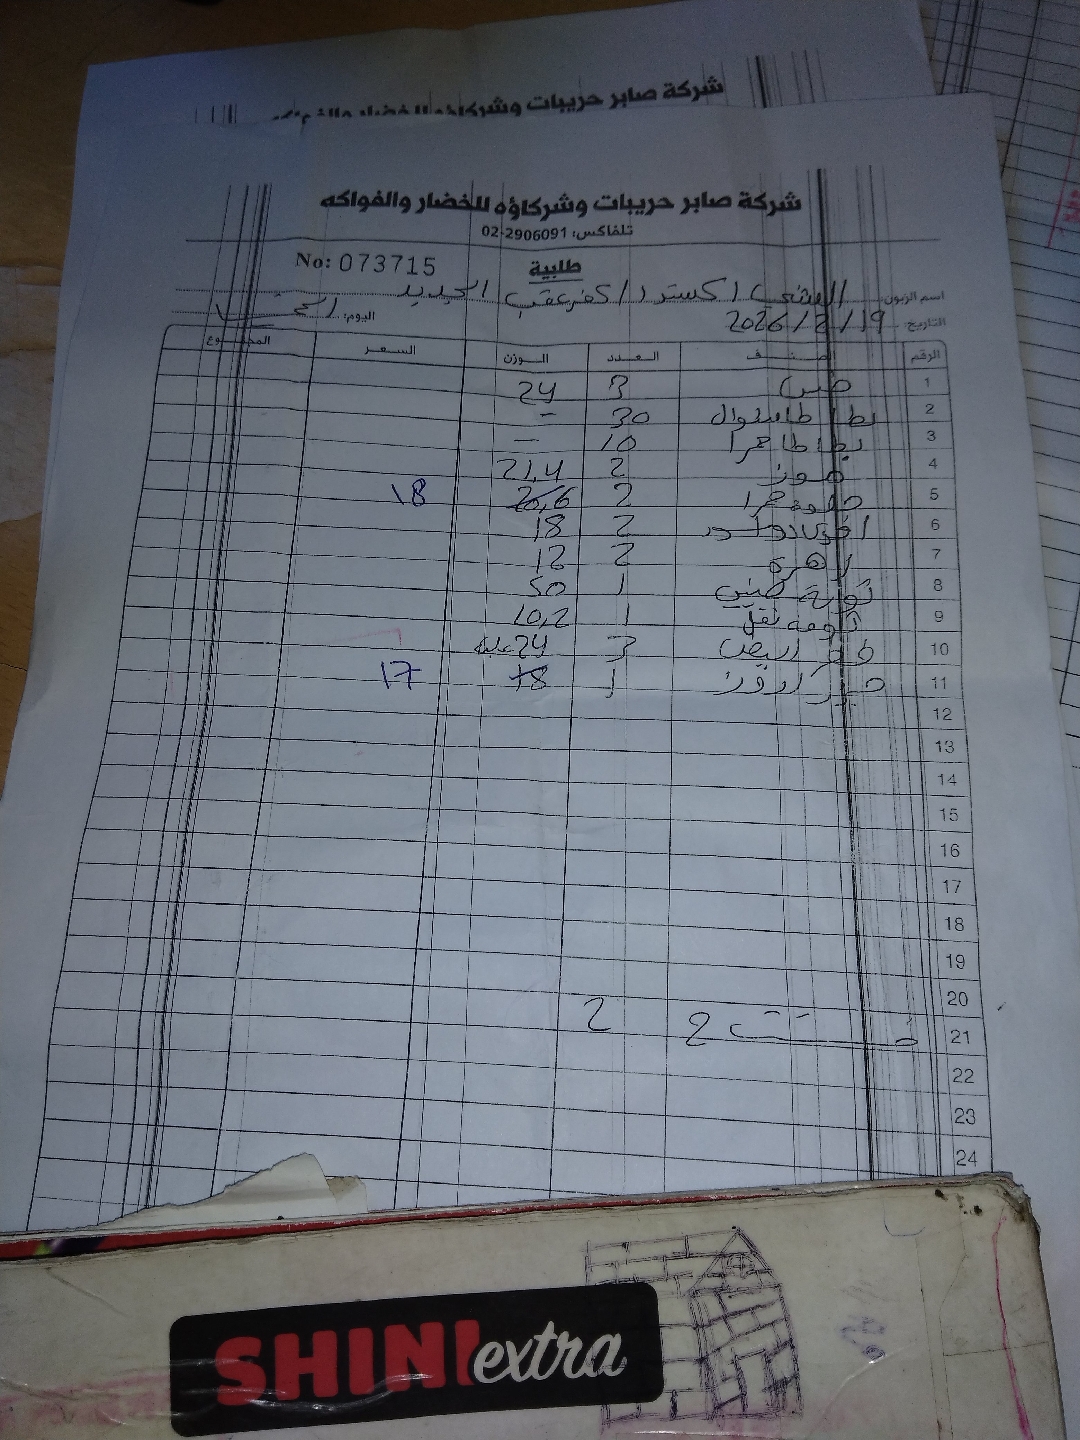 شركة صابر حريبات وشركاؤه للخضار والفواكه
شركة صابر حريبات وشركاؤه للخضار والفواكه
تلفاكس: 02-2906091
طلبية
No: 073715
اسم الزبون: الشني اكسترا / كفر عقب الجديد
التاريخ: 19/2/2026 اليوم: الخميس
الرقم الصنف العدد الوزن السعر المجموع
1 3 24
2 بطاطا 30 -
3 بطاطا حمرا 10 -
4 موز 2 21,4
5 حمرا 2 20,6 18
6 افوكادو 2 18
7 زهرة 2 12
8 ثومة صيني 1 50
9 1 10,2
10 فطر ابيض 3 24 علبة
11 1 18 17
12
13
14
15
16
17
18
19
20
21 2 2
22
23
24
SHINI extra